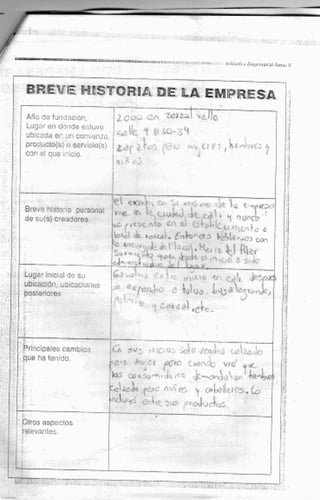 BREVE HISTORIA DE LA EMPRESA
Año de fundación,
Lugar en donde estuvo
ubicada en un comienzo,
producto(s) o servicio(s)
con el que inicio.
2000 en valle
calle 9 11-10-34
zapatos para mujeres, hombres y
niños
Breve historia personal
de su(s) creadores.
el en si mismo de la empresa
vive en la ciudad de cali, y nunca
se presento en el establecimiento o
local de Entonces hablamos con
la encargada del local. Maria del Pilar
desde el inicio a sido
Lugar inicial de su
ubicación, ubicaciones
posteriores
inicio en cali despues
se expandio a tulua, buga
palmira y etc.
Principales cambios
que ha tenido.
En sus inicios solo vendia calzado
para mujer pero cuando vio que
los consumidores demandaban tambien
calzado para niños y caballeros. Lo
incluyo entre sus productos.
Otros aspectos
relevantes.